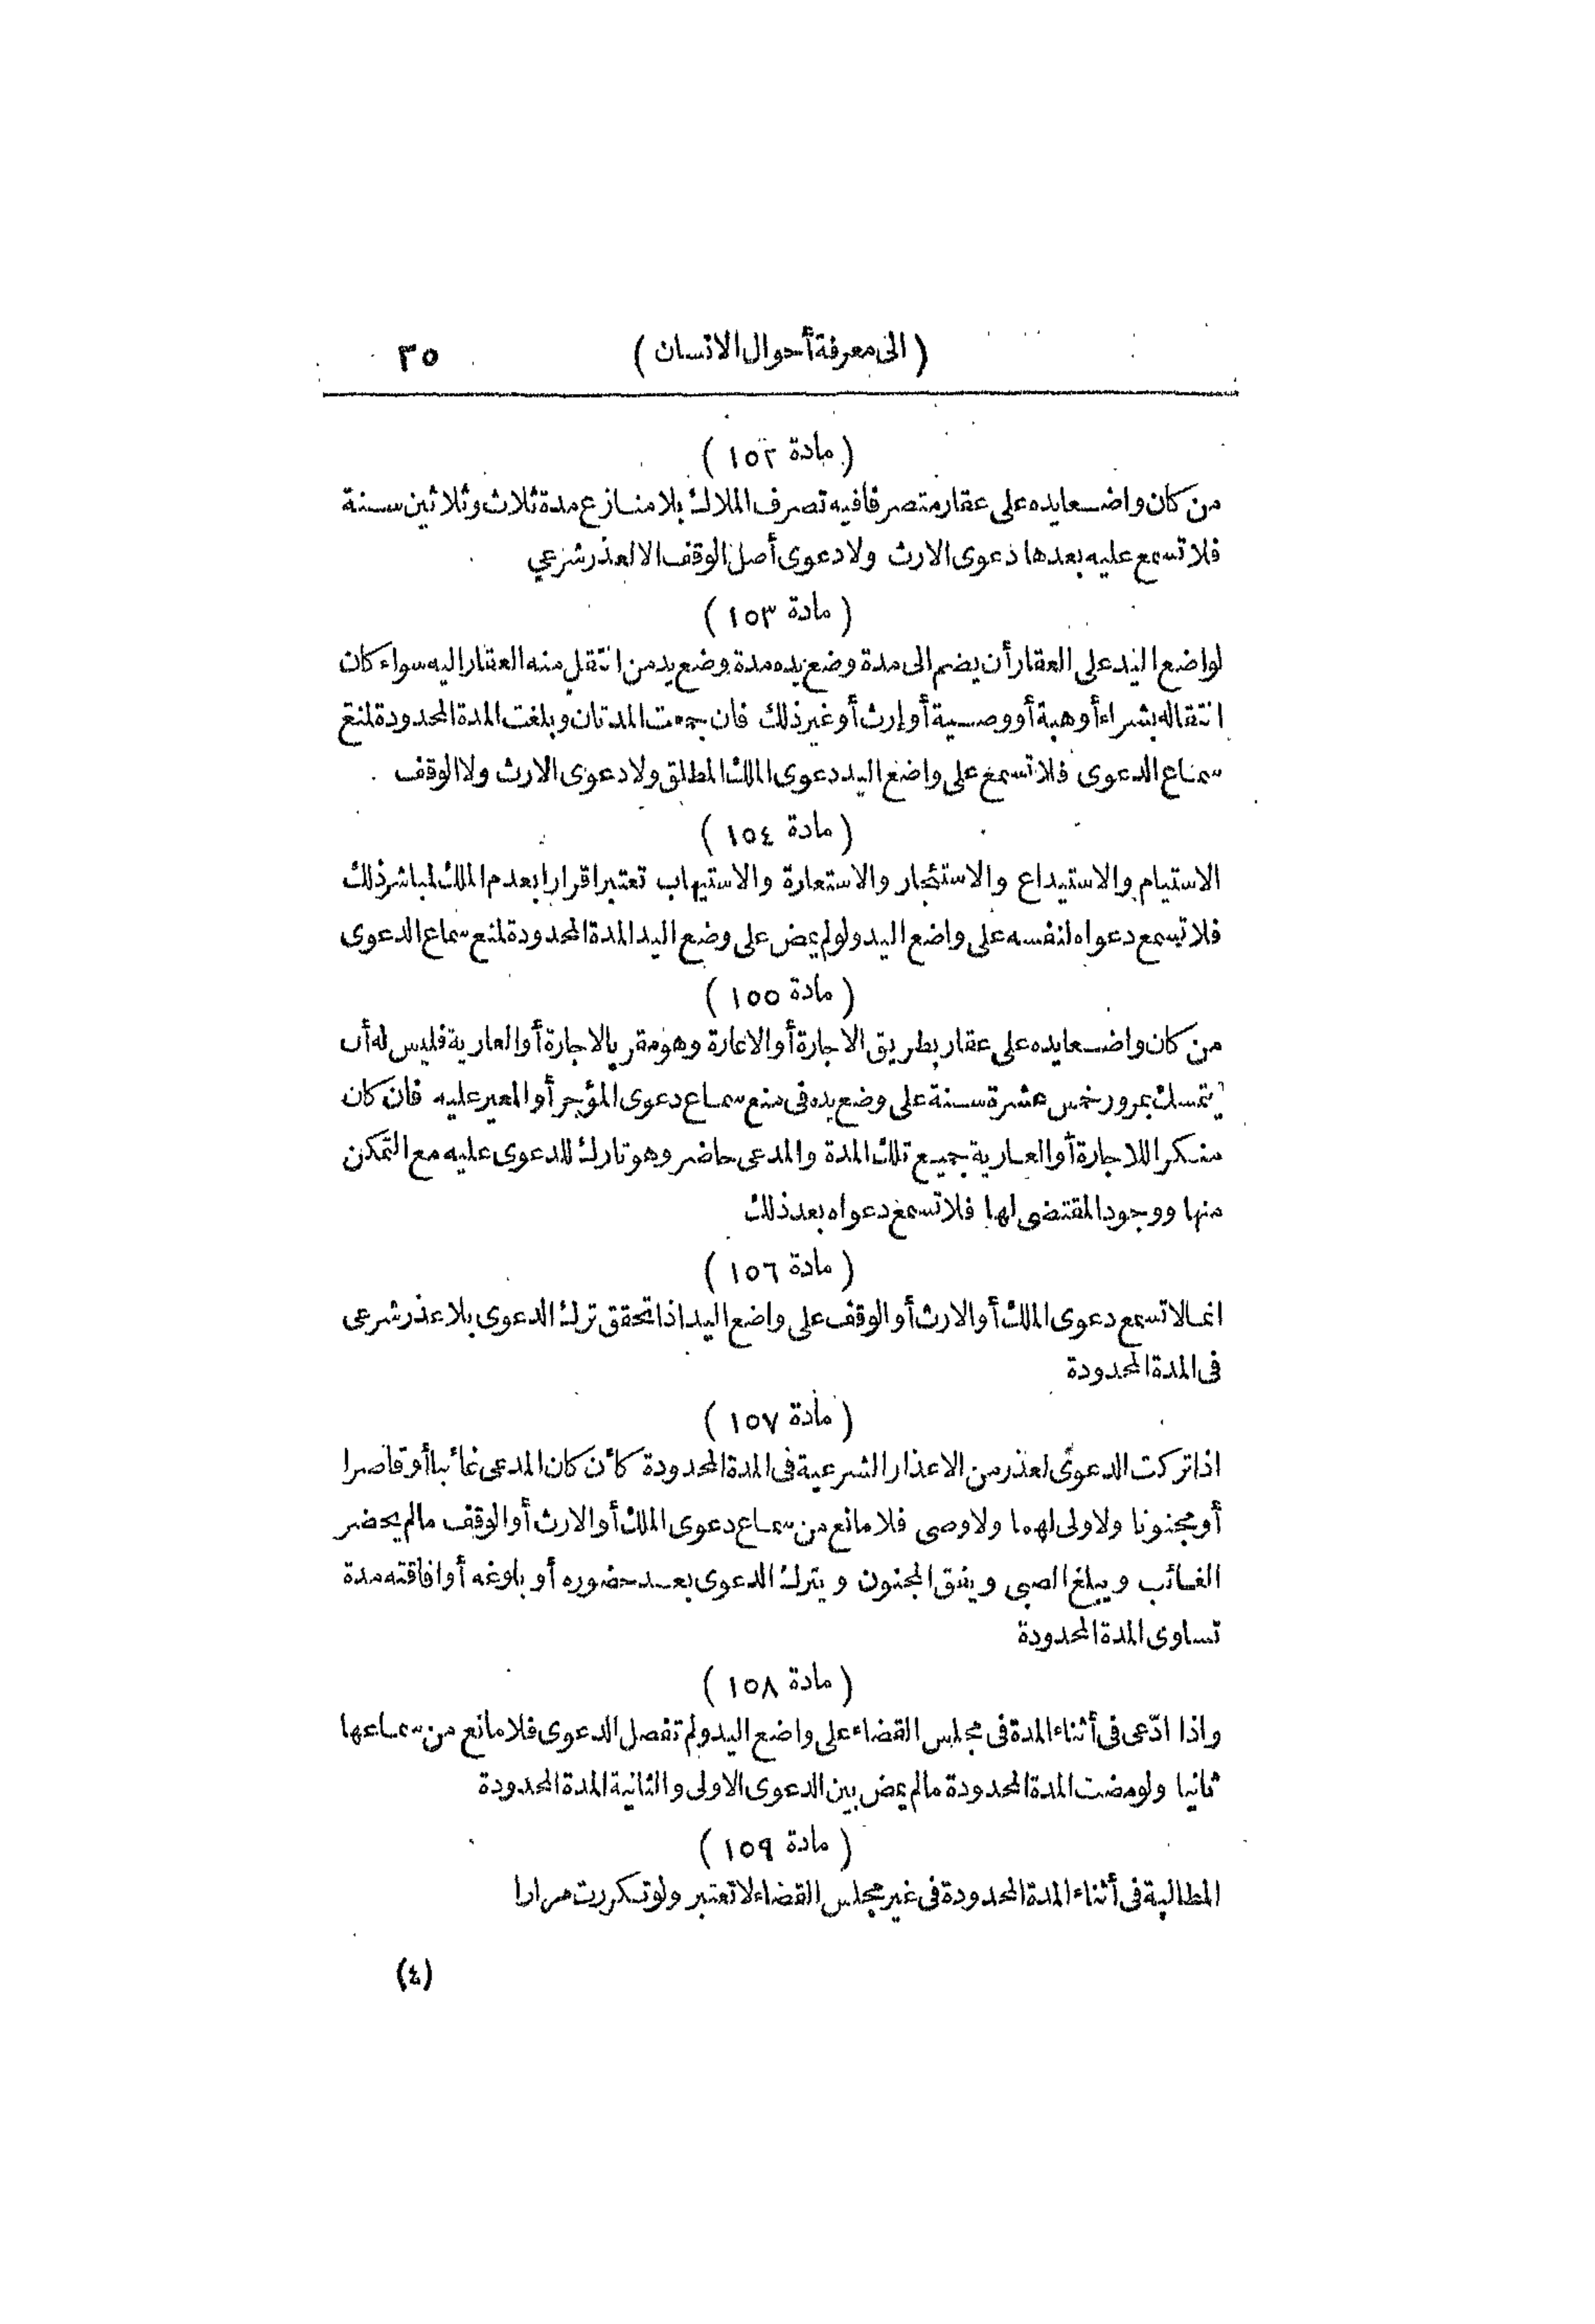 (الى معرفة أحوال الانسان) ٣٥
(مادة ١٥٢)
من كان واضعا يده على عقار متصرفا فيه تصرف الملاك بلا منازع مدة ثلاث وثلاثين سنة
فلا تسمع عليه بعدها دعوى الارث ولا دعوى أصل الوقف الا لعذر شرعي
(مادة ١٥٣)
لواضع اليد على العقار أن يضم الى مدة وضع يده مدة وضع يد من انتقل منه العقار اليه سواء كان
انتقاله بشراء أو هبة أو وصية أو إرث أو غير ذلك فان جمعت المدتان وبلغت المدة المحدودة لمنع
سماع الدعوى فلا تسمع على واضع اليد دعوى الملك المطلق ولا دعوى الارث ولا الوقف
(مادة ١٥٤)
الاستيام والاستيداع والاستئجار والاستعارة والاستيهاب تعتبر اقرارا بعدم الملك لمباشر ذلك
فلا تسمع دعواه لنفسه على واضع اليد ولو لم يمض على وضع اليد المدة المحدودة لمنع سماع الدعوى
(مادة ١٥٥)
من كان واضعا يده على عقار بطريق الاجارة أو الاعارة وهو مقر بالاجارة أو العارية فليس له أن
يتمسك بمرور خمس عشرة سنة على وضع يده فى منع سماع دعوى المؤجر أو المعير عليه فان كان
منكرا للاجارة أو العارية جميع تلك المدة والمدعى حاضر وهو تارك للدعوى عليه مع التمكن
منها ووجود المقتضى لها فلا تسمع دعواه بعد ذلك
(مادة ١٥٦)
انما لا تسمع دعوى الملك أو الارث أو الوقف على واضع اليد اذا تحقق ترك الدعوى بلا عذر شرعى
فى المدة المحدودة
(مادة ١٥٧)
اذا تركت الدعوى لعذر من الاعذار الشرعية فى المدة المحدودة كأن كان المدعى غائبا أو قاصرا
أو مجنونا ولا ولى لهما ولا وصى فلا مانع من سماع دعوى الملك أو الارث أو الوقف مالم يحضر
الغائب ويبلغ الصبى ويفق المجنون ويترك الدعوى بعد حضوره أو بلوغه أو افاقته مدة
تساوى المدة المحدودة
(مادة ١٥٨)
واذا ادّعى فى أثناء المدة فى مجلس القضاء على واضع اليد ولم تفصل الدعوى فلا مانع من سماعها
ثانيا ولو مضت المدة المحدودة مالم يمض بين الدعوى الاولى والثانية المدة المحدودة
(مادة ١٥٩)
المطالبة فى أثناء المدة المحدودة فى غير مجلس القضاء لا تعتبر ولو تكررت مرارا
(٤)